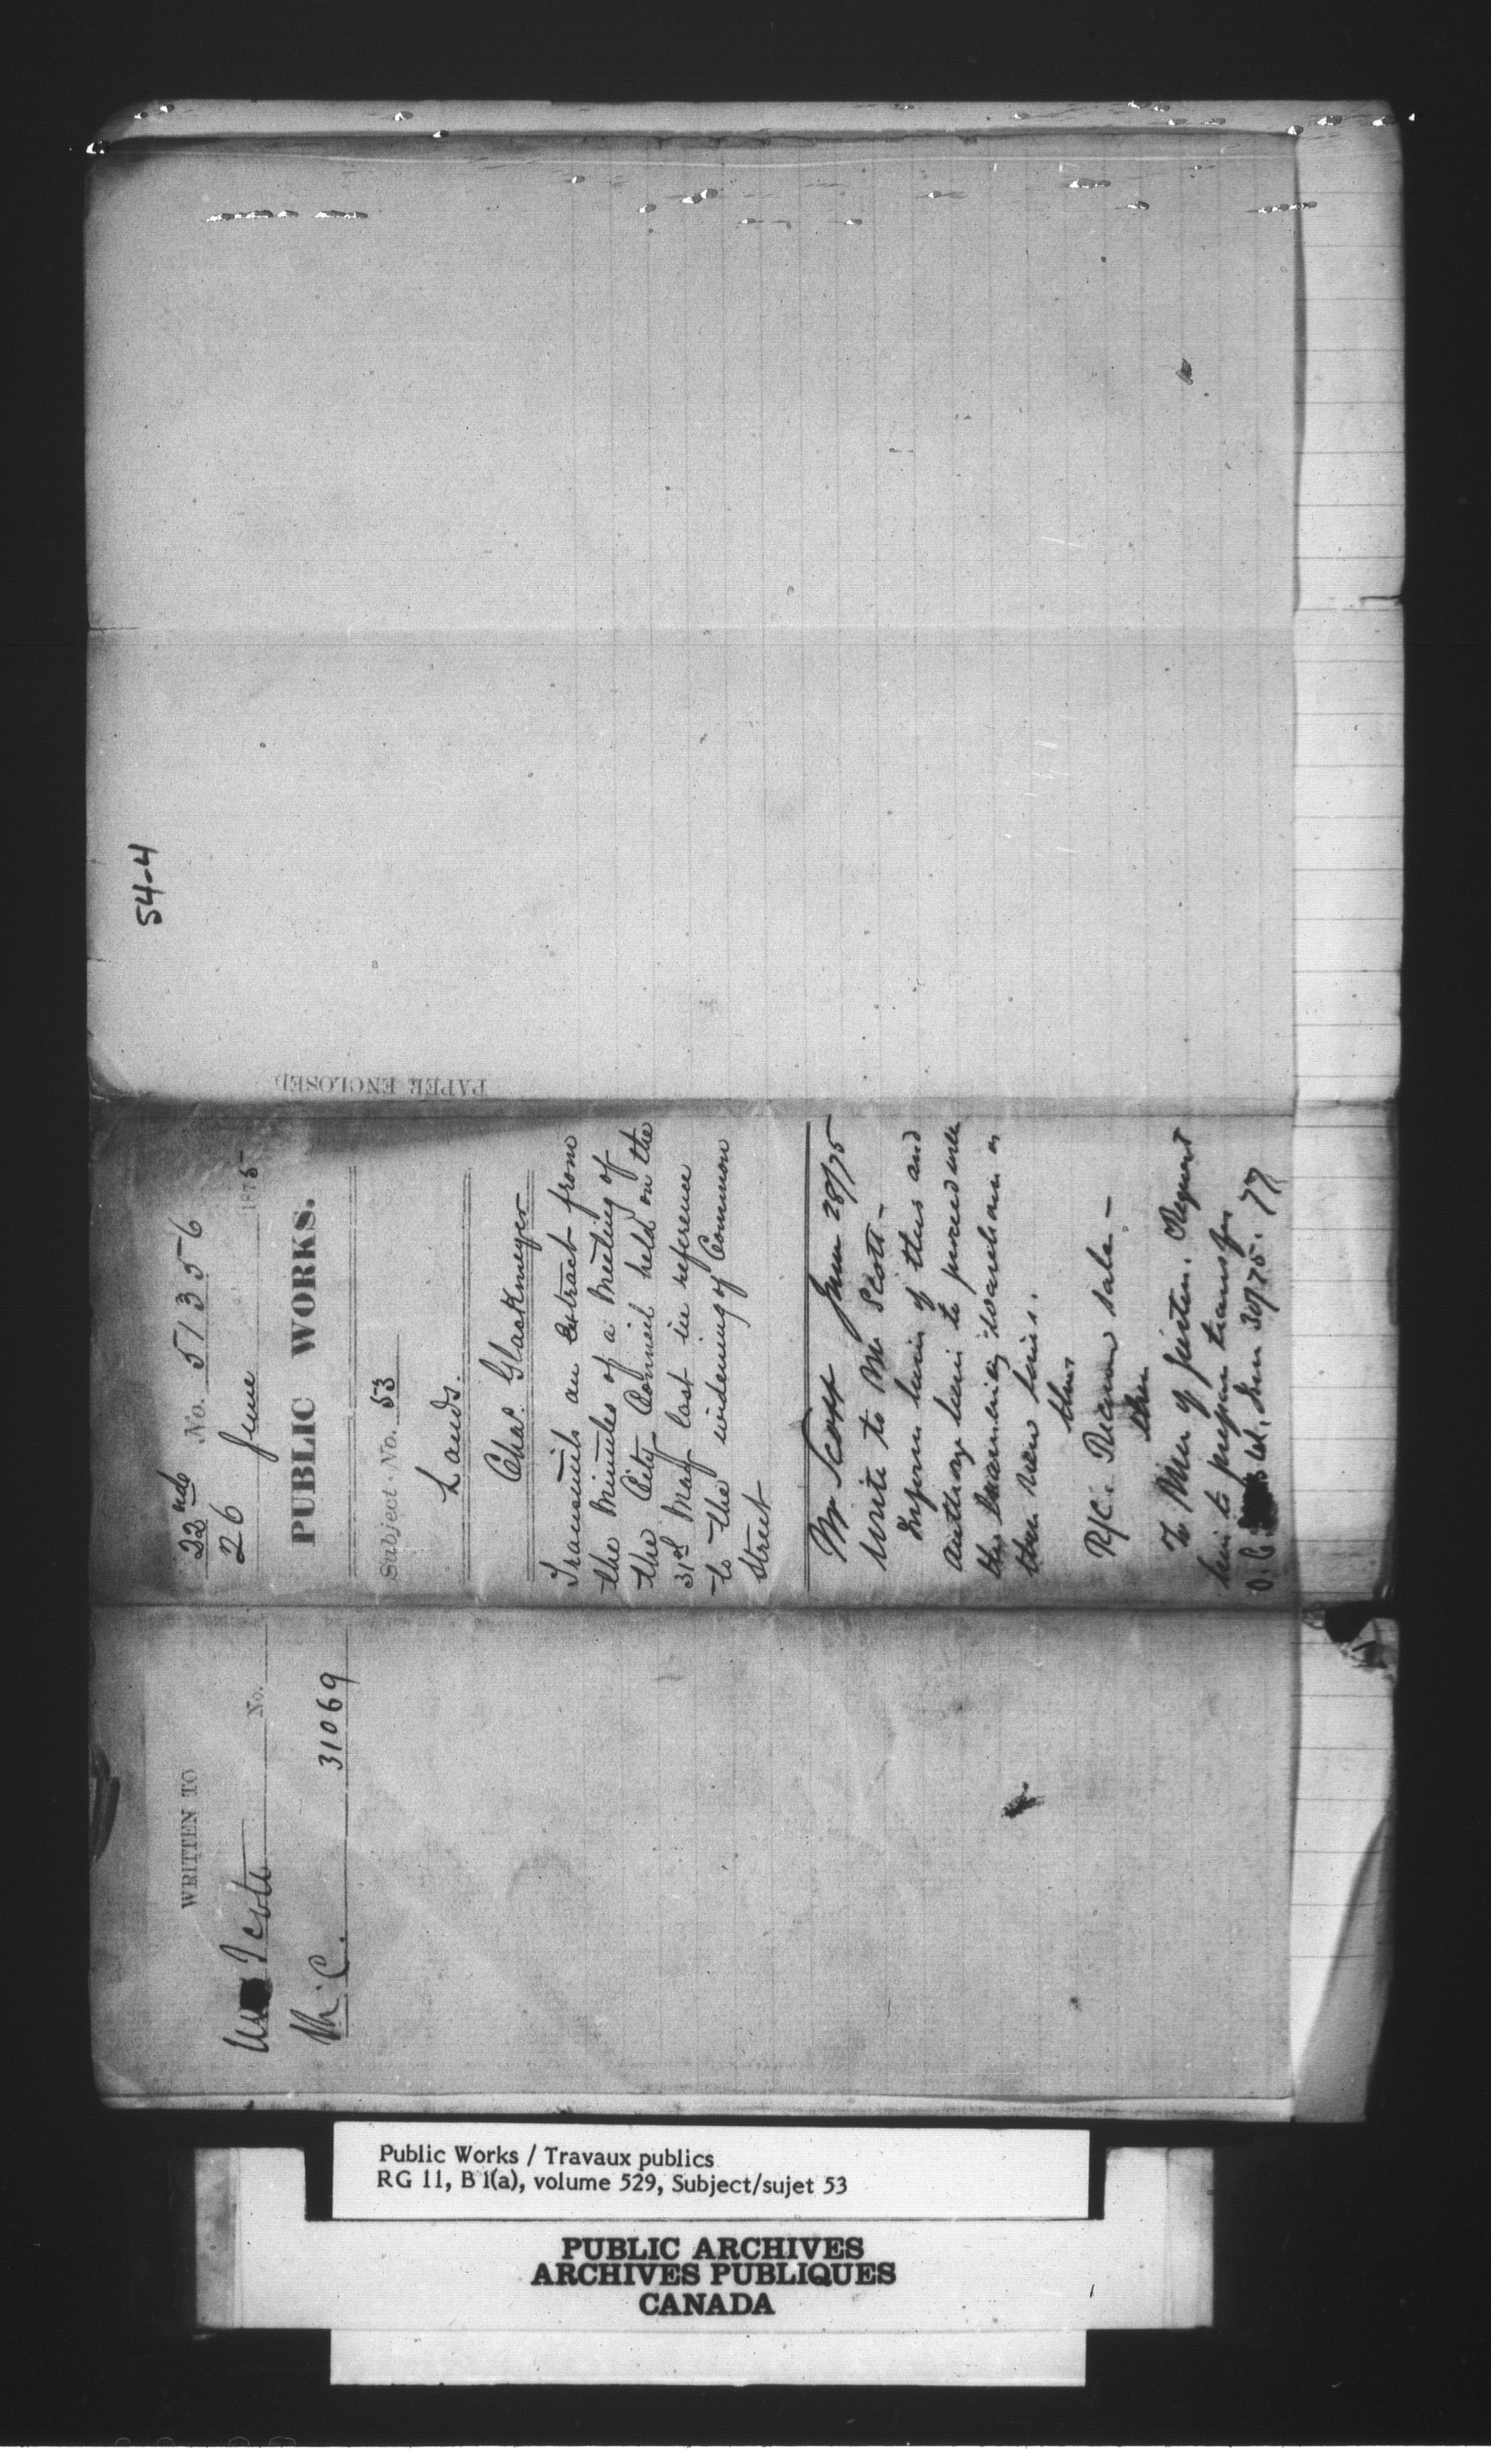 54-4
PAPER ENCLOSED
22nd No. 51356
26 June 1875
PUBLIC WORKS.
Subject No. 53
Lands.
Chas. Glackmeyer
Transmits an Extract from
the Minutes of a Meeting of
the City Council held on the
31st May last in reference
to the widening of Common
Street
Mr Scott June 28/75
Write to Mr Scott –
Inform him of this and
authorize him to proceed with
the
then new
then
R/C. sale –
then
To Min of Justice. Request
him to prepare transfer
June 30/75.
WRITTEN TO
No.
Scott
M. C. 31069
Public Works / Travaux publics
RG 11, B 1(a), volume 529, Subject/sujet 53
PUBLIC ARCHIVES
ARCHIVES PUBLIQUES
CANADA